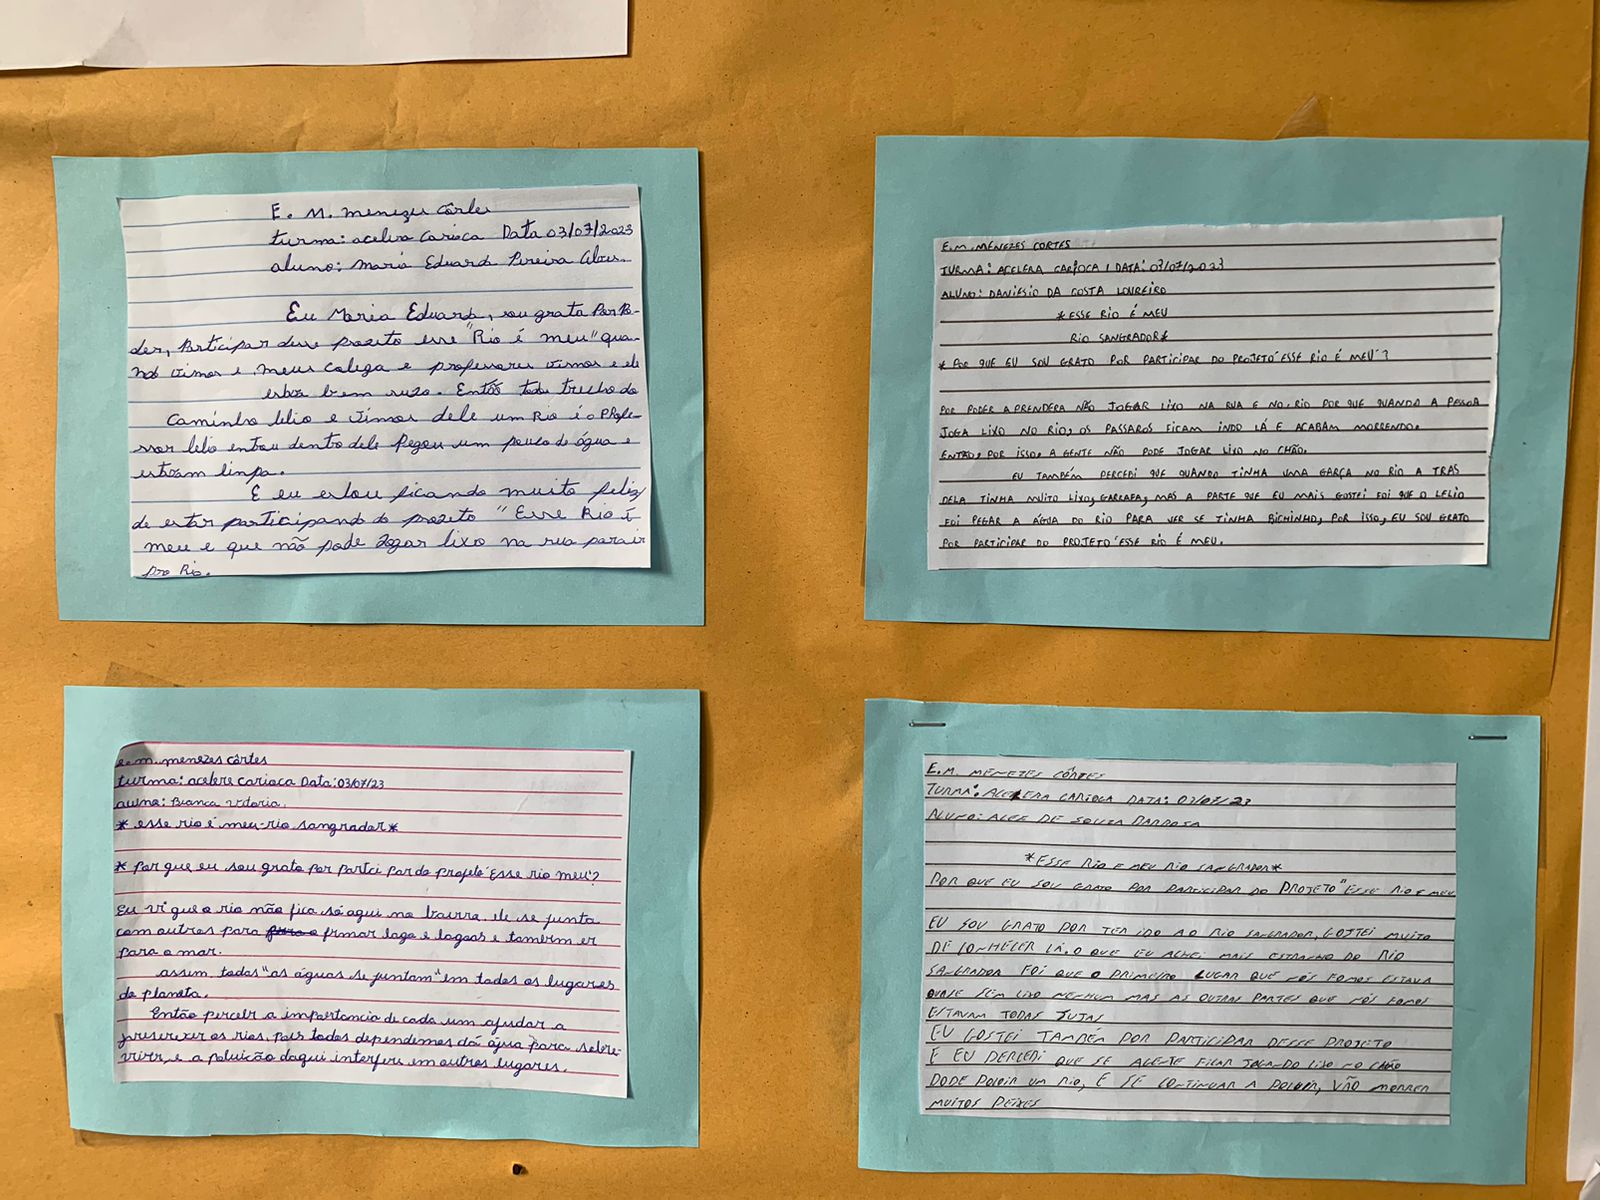 E. M. menezes Côrtes
turma: acelera Carioca Data 03/07/2023
aluno: Maria Eduarda Pereira Alves.
Eu Maria Eduarda, sou grata Por Po-
der, Participar desse projeto esse "Rio é meu" qua-
ndo vimos e, meus colega e professores vimos e ele
estava bem sujo. Então todo trecho do
Caminho lelio e vimos dele um Rio é o Profe-
ssor lelio entrou dentro dele Pegou um pouco de água e
estavam linpa.
E eu estou ficando muito feliz
de estar participando do projeto "Esse Rio é
meu e que não pode Jogar lixo na rua para ir
pro Rio.
E.M. MENEZES CORTES
TURMA: ACELERA CARIOCA / DATA: 03/07/2023
ALUNO: DANIESIO DA COSTA LOUREIRO
*ESSE RIO É MEU
RIO SANGRADOR*
* POR QUE EU SOU GRATO POR PARTICIPAR DO PROJETO "ESSE RIO É MEU"?
POR PODER APRENDERA NÃO JOGAR LIXO NA RUA E NO, RIO POR QUE QUANDO A PESSOA
JOGA LIXO NO RIO, OS PASSAROS FICAM INDO LÁ E ACABAM MORRENDO.
ENTÃO, POR ISSO, A GENTE NÃO PODE JOGAR LIXO NO CHÃO.
EU TAMBÉM PERCEBI QUE QUANDO TINHA UMA GARÇA NO RIO A TRAS
DELA TINHA MUITO LIXO, GARRAFA, MAS A PARTE QUE EU MAIS GOSTEI FOI QUE O LELIO
FOI PEGAR A ÁGUA DO RIO PARA VER SE TINHA BICHINHO, POR ISSO, EU SOU GRATO
POR PARTICIPAR DO PROJETO "ESSE RIO É MEU.
e. m. menezes côrtes
turma: acelere carioca Data: 03/07/23
auna: Bianca Vitoria.
* esse rio é meu-rio sangrador*
* Por que eu sou grato por partici par do projeto "Esse rio meu"?
Eu vi que o rio não fica só aqui no bairro, ele se junta
com outros para frmar lago e lagoas e também er
para o mar.
assim, todas "as águas se juntam" em todos os lugares
do planeta.
Então percebi a importancia de cada um ajudar a
preserver os rios, pois todos dependemos da água para sobre-
viver, e a poluição daqui interferi em outros lugares.
E.M. MENEZES CÔRTES
TURMA: ACELERA CARIOCA DATA: 03/07/23
ALUNO: ALEF DE SOUZA BARBOSA
*ESSE RIO E MEU RIO SANGRADOR*
POR QUE EU SOU GRATO POR PARTICIPAR DO PROJETO "ESSE RIO E MEU
EU SOU GRATO POR TER IDO AO RIO SANGRADOR, GOSTEI MUITO
DE CONHECER LÁ. O QUE EU ACHEI MAIS ESTRANHO DO RIO
SANGRADOR FOI QUE O PRIMEIRO LUGAR QUE NÓS FOMOS ESTAVA
QUASE SEM LIXO NENHUM MAS AS OUTRAS PARTES QUE NÓS FOMOS
ESTAVAM TODAS SUJAS
EU GOSTEI TAMBÉM POR PARTICIPAR DESSE PROJETO
E EU PERCEBI QUE SE AGENTE FICAR JOGANDO LIXO NO CHÃO
PODE POLUIR UM RIO, E SE CONTINUAR A POLUIR, VÃO MORRER
MUITOS PEIXES